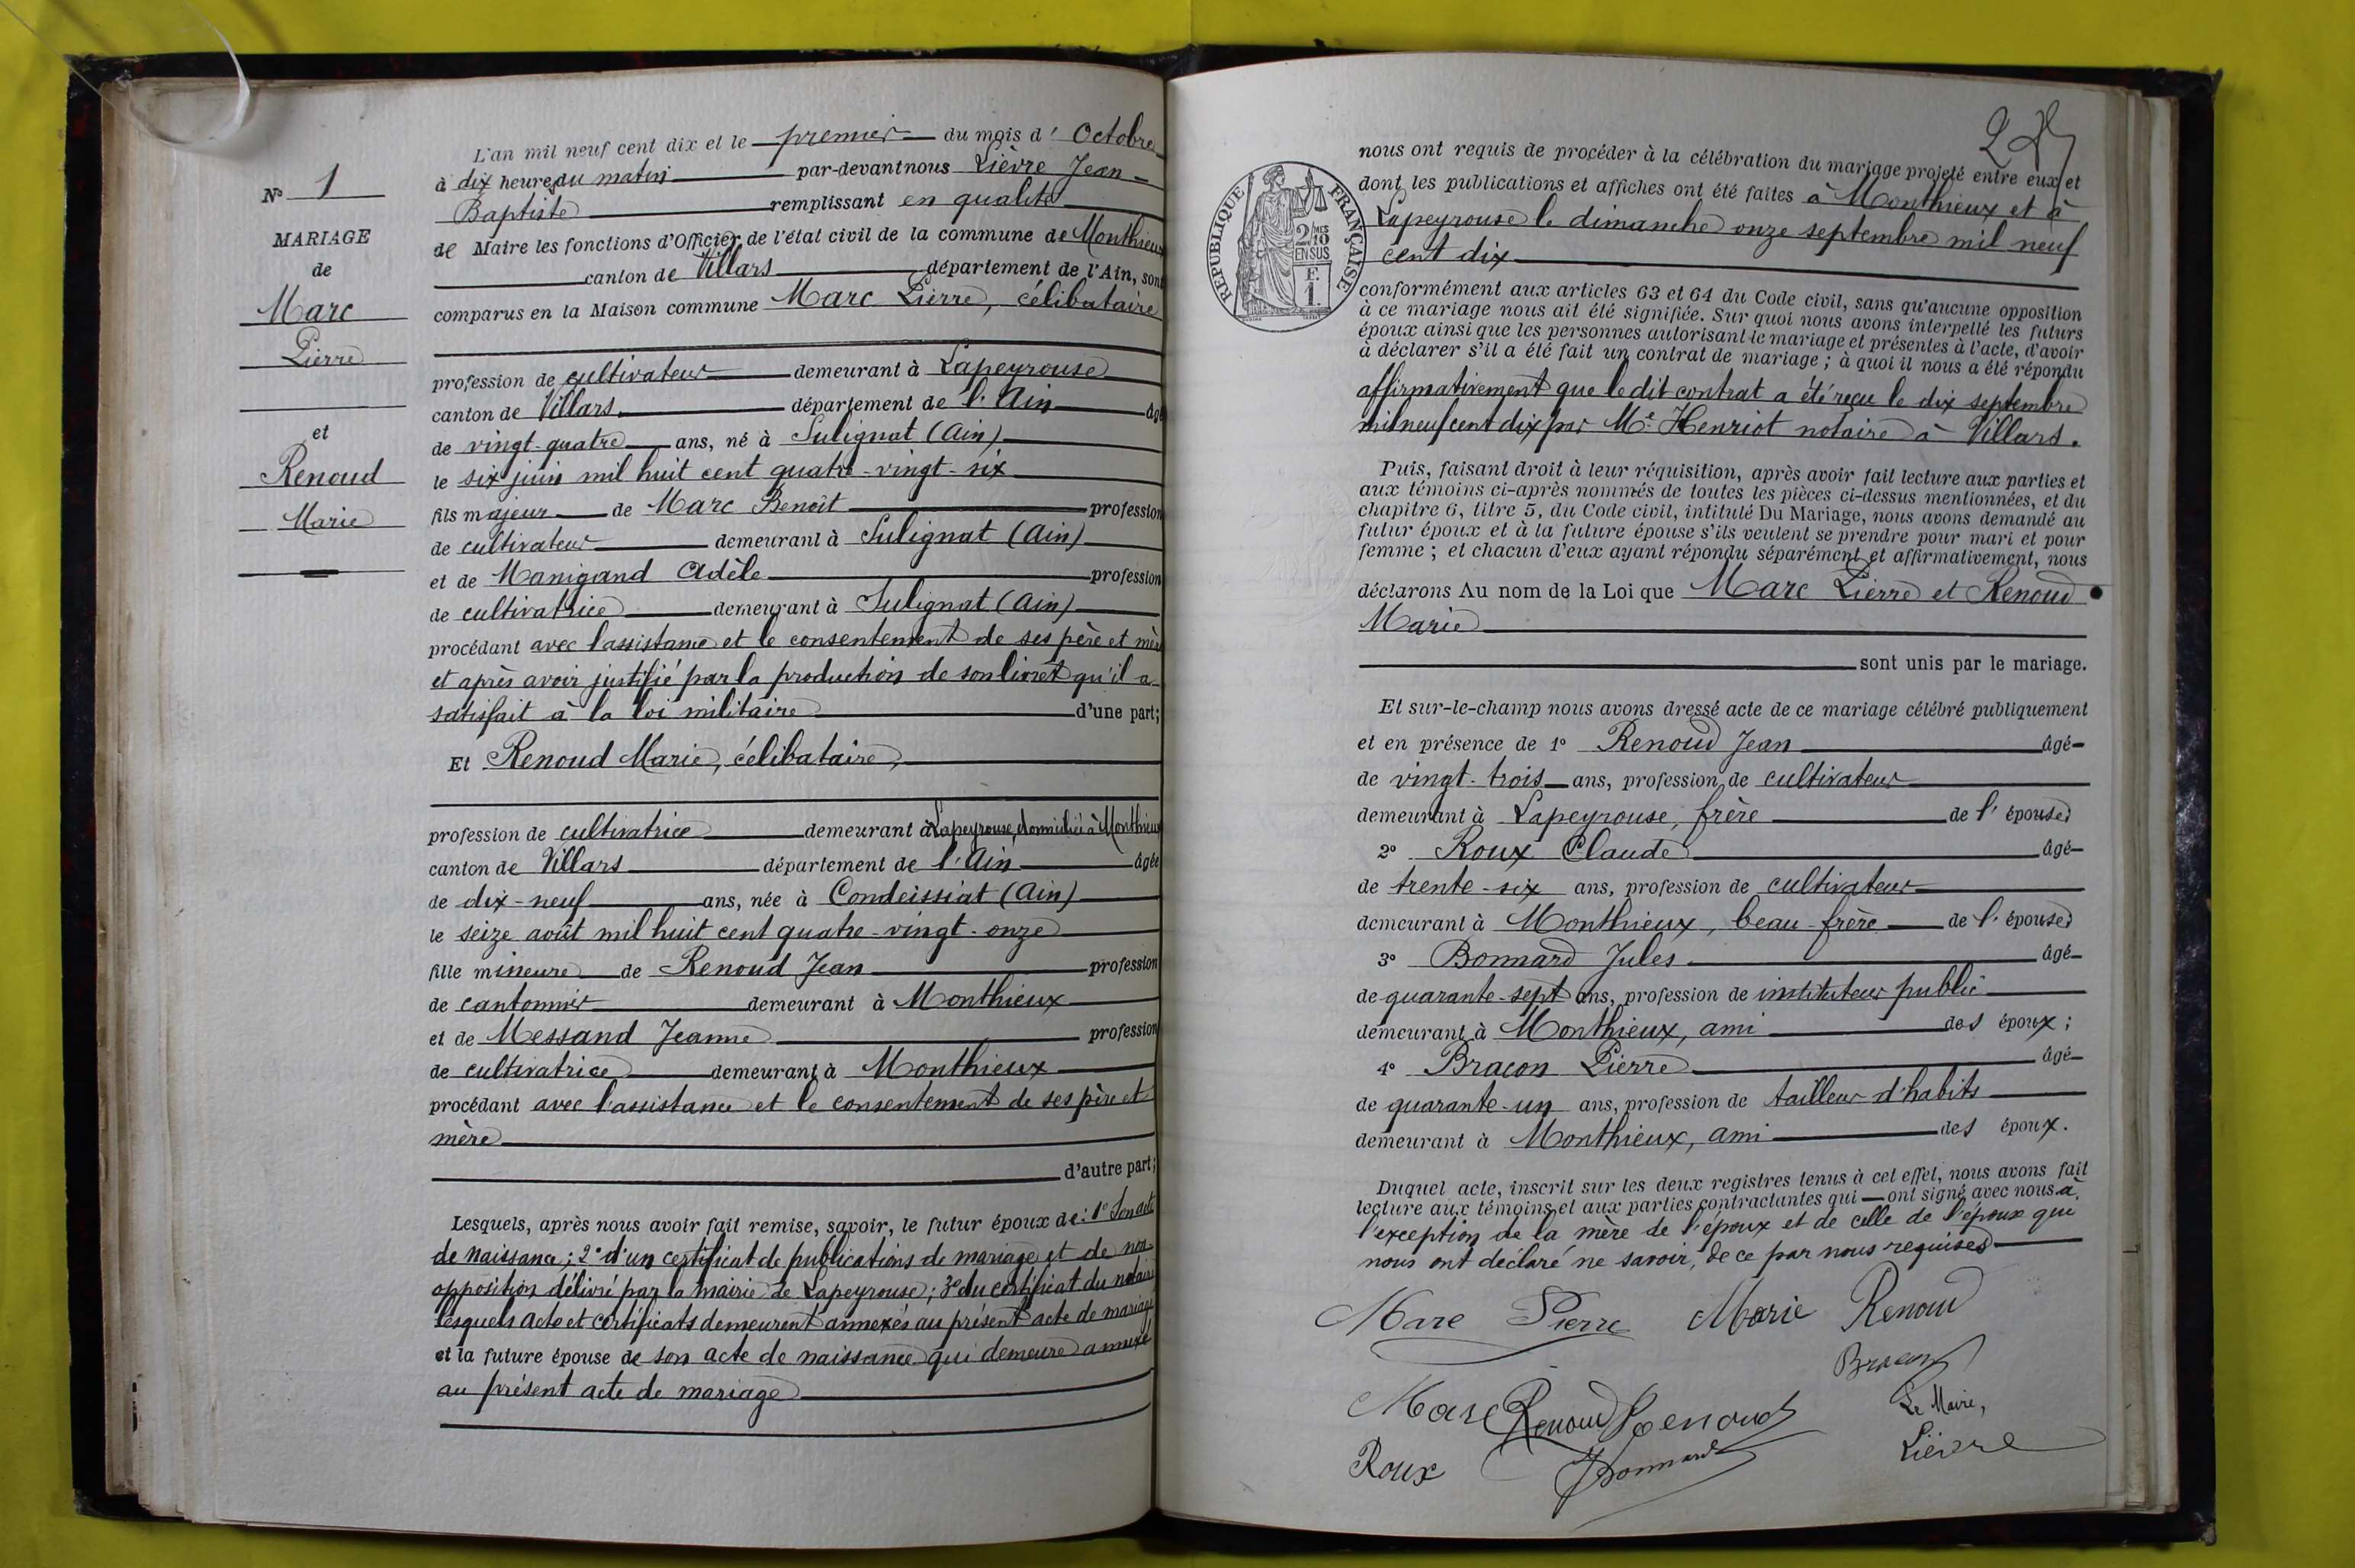 N° 1
MARIAGE
de
Marc
Pierre
et
Renoud
Marie
L'an mil neuf cent dix et le premier du mois d' Octobre
à dix heures du matin par-devant nous Lièvre Jean-
Baptiste remplissant en qualité
de Maire les fonctions d'Officier de l'état civil de la commune de Monthieux
canton de Villars département de l'Ain, sont
comparus en la Maison commune Marc Pierre, célibataire
profession de cultivateur demeurant à Lapeyrouse
canton de Villars département de l'Ain âgé
de vingt-quatre ans, né à Sulignat (Ain)
le six juin mil huit cent quatre-vingt-six
fils majeur de Marc Benoît profession
de cultivateur demeurant à Sulignat (Ain)
et de Manigand Adèle profession
de cultivatrice demeurant à Sulignat (Ain)
procédant avec l'assistance et le consentement de ses père et mère
et après avoir justifié par la production de son livret qu'il a
satisfait à la loi militaire d'une part;
Et Renoud Marie, célibataire,
profession de cultivatrice demeurant à Lapeyrouse, domiciliée à Monthieux
canton de Villars département de l'Ain âgée
de dix-neuf ans, née à Condeissiat (Ain)
le seize août mil huit cent quatre-vingt-onze
fille mineure de Renoud Jean profession
de cantonnier demeurant à Monthieux
et de Messand Jeanne profession
de cultivatrice demeurant à Monthieux
procédant avec l'assistance et le consentement de ses père et
mère
d'autre part;
Lesquels, après nous avoir fait remise, savoir, le futur époux de: 1° Son acte
de naissance; 2° d'un certificat de publications de mariage et de non
opposition délivré par la mairie de Lapeyrouse; 3° du certificat du notaire
lesquels acte et certificats demeurent annexés au présent acte de mariage
et la future épouse de son acte de naissance qui demeure annexé
au présent acte de mariage
REPUBLIQUE FRANÇAISE
2/10MES
EN SUS
F.
1.
nous ont requis de procéder à la célébration du mariage projeté entre eux et
dont les publications et affiches ont été faites à Monthieux et à
Lapeyrouse le dimanche onze septembre mil neuf
cent dix
conformément aux articles 63 et 64 du Code civil, sans qu'aucune opposition
à ce mariage nous ait été signifiée. Sur quoi nous avons interpellé les futurs
époux ainsi que les personnes autorisant le mariage et présentes à l'acte, d'avoir
à déclarer s'il a été fait un contrat de mariage; à quoi il nous a été répondu
affirmativement que le dit contrat a été reçu le dix septembre
mil neuf cent dix par Me Henriot notaire à Villars.
Puis, faisant droit à leur réquisition, après avoir fait lecture aux parties et
aux témoins ci-après nommés de toutes les pièces ci-dessus mentionnées, et du
chapitre 6, titre 5, du Code civil, intitulé Du Mariage, nous avons demandé au
futur époux et à la future épouse s'ils veulent se prendre pour mari et pour
femme; et chacun d'eux ayant répondu séparément et affirmativement, nous
déclarons Au nom de la Loi que Marc Pierre et Renoud
Marie
sont unis par le mariage.
Et sur-le-champ nous avons dressé acte de ce mariage célébré publiquement
et en présence de 1° Renoud Jean âgé
de vingt-trois ans, profession de cultivateur
demeurant à Lapeyrouse, frère de l'épouse;
2° Roux Claude âgé
de trente-six ans, profession de cultivateur
demeurant à Monthieux, beau-frère de l'épouse;
3° Bonnard Jules âgé
de quarante-sept ans, profession de instituteur public
demeurant à Monthieux, ami des époux;
4° Bracon Pierre âgé
de quarante-un ans, profession de tailleur d'habits
demeurant à Monthieux, ami des époux.
Duquel acte, inscrit sur les deux registres tenus à cet effet, nous avons fait
lecture aux témoins et aux parties contractantes qui ont signé avec nous à
l'exception de la mère de l'époux et de celle de l'épouse qui
nous ont déclaré ne savoir, de ce par nous requises
Marc Pierre Marie Renoud
Bracon
Marc Renoud Renoud Le Maire,
Roux Bonnard Lièvre